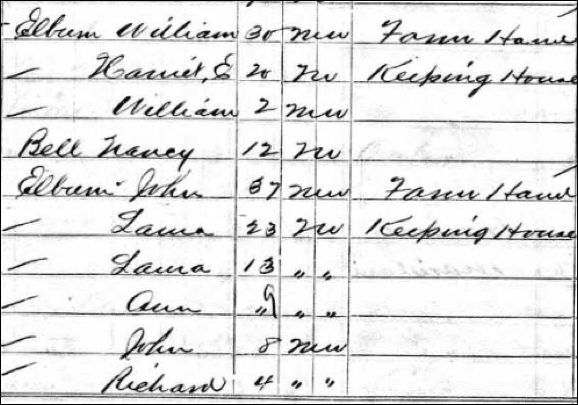 Elbum William 30 M W Farm Hand
— Harriet, E 20 F W Keeping House
— William 2 M W
Bell Nancy 12 F W
Elbum John 37 M W Farm Hand
— Laura 23 F W Keeping House
— Laura 13 " "
— Ann 9 " "
— John 8 M W
— Richard 4 " "